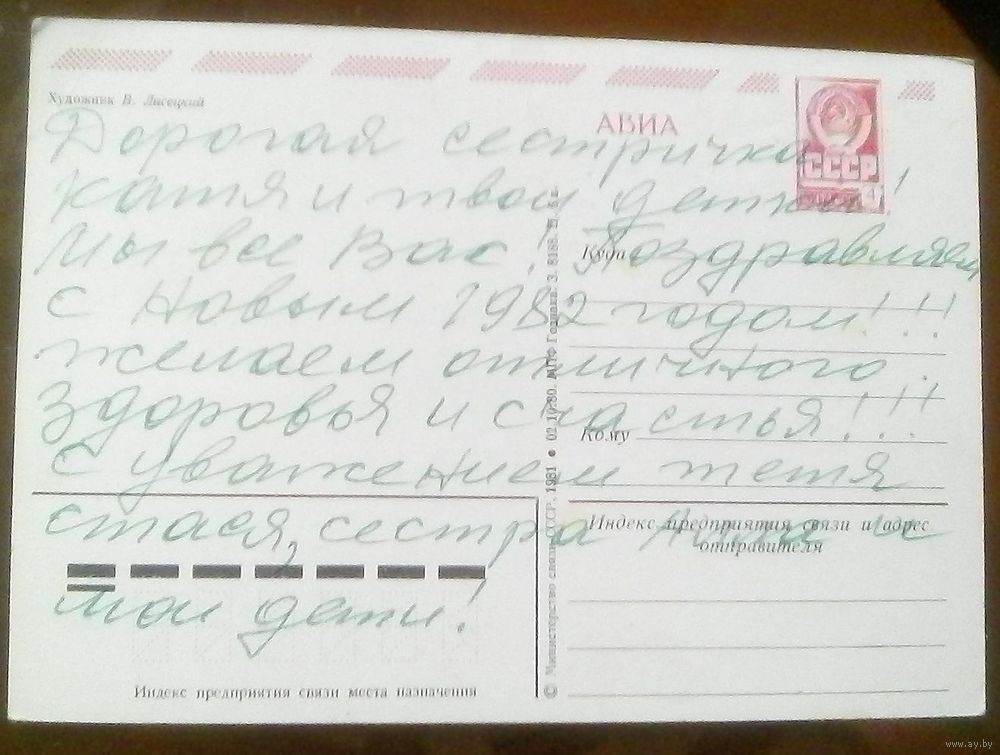 Художник В. Лисецкий
АВИА
СССР
Дорогая сестричка
Катя и твои детки!
Мы все Вас! Поздравляем
с Новым 1982 годом!!!
желаем отличного
здоровья и счастья!!!
С уважением тетя
стася, сестра Анна и
мои дети!
Куда
Кому
Индекс предприятия связи и адрес
отправителя
Индекс предприятия связи места назначения
© Министерство связи СССР. 1981 • 02.10.80. МПФ Гознака. З. 8188. Ц. 5 к.
www.ay.by